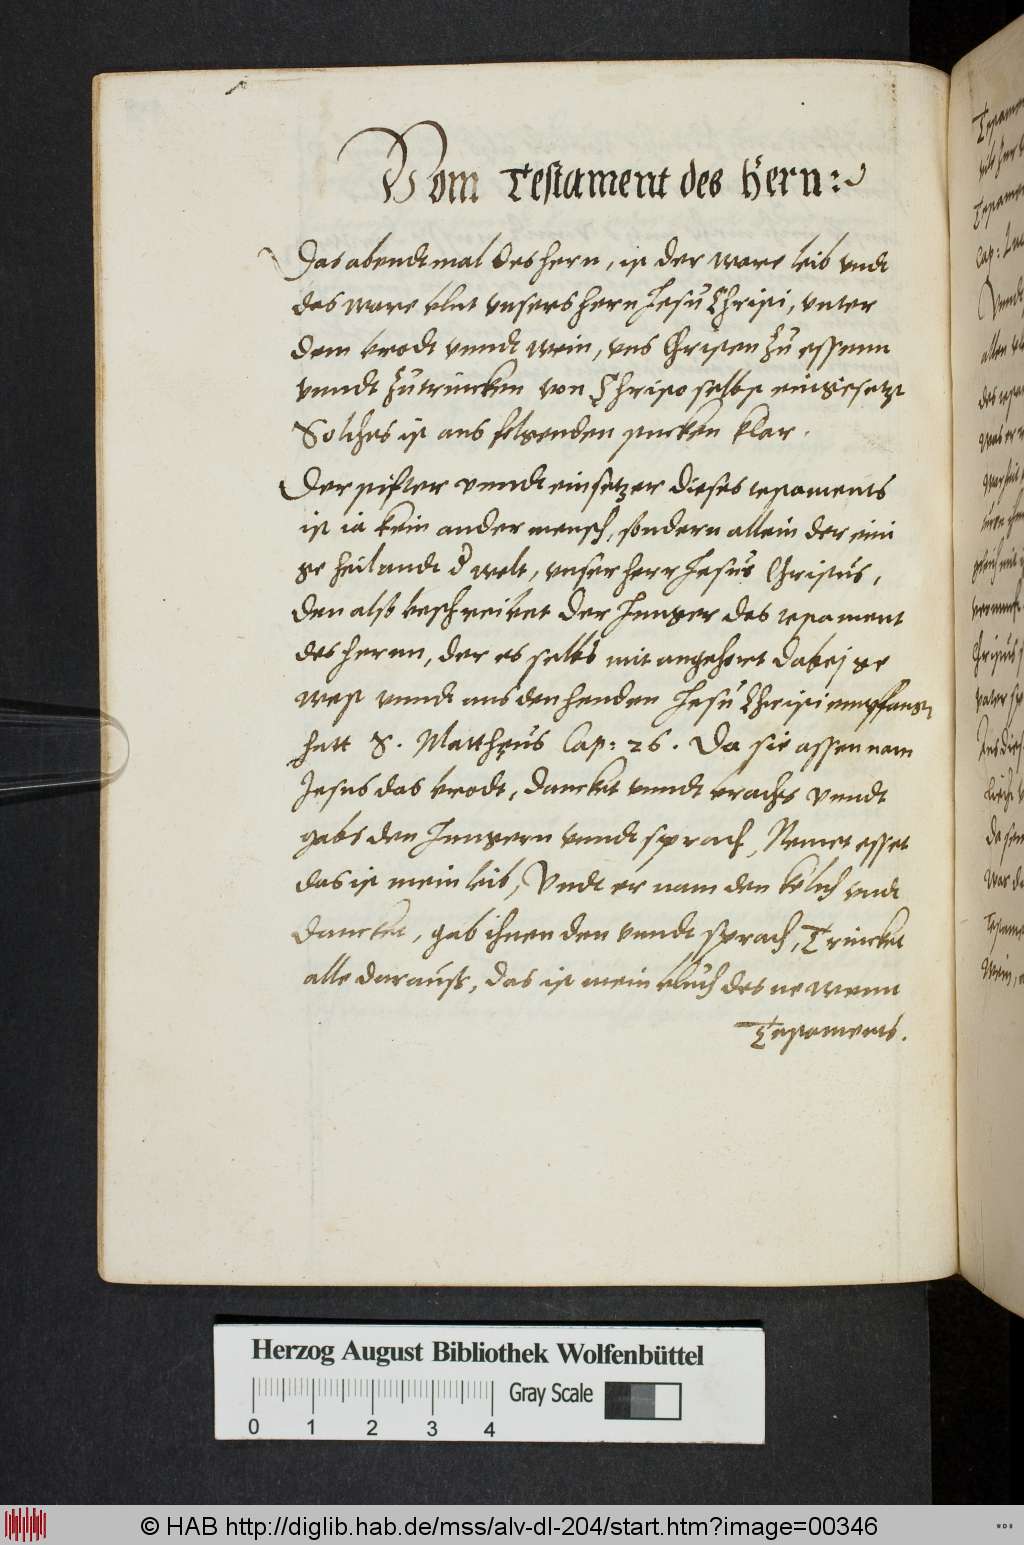 Vom Testament des Hern:
Das abendtmal des hern, ist der ware leib vndt
das ware blut vnsers hern Jesu Christi, vnter
dem brodt vnndt wein, vns Christen zu essenn
vnndt zutrincken von Christo selbst eingesetzt
Solches ist aus folgenden stucken klar.
Der stifter vnndt einsetzer dieses testaments
ist ia kein ander mensch, sondern allein der eini
ge heilandt d welt, vnser herr Jesus Christus,
den alß beschreibet der Junger das testament
des herrn, der es selbs mit angehort dabej ge
west vnndt aus den henden Jesu Christi empfangen
hatt S. Matthęus Cap: 26. Da sie assen nam
Jesus das brodt, dancket vnndt brachs vnndt
gabs den Jungern vnndt sprach, Nemet esset
das ist mein leib, Vndt er nam den kelch vndt
dancket, gab ihnen den vnndt sprach, Trincket
alle darauß, das ist mein bluth des newenn
Testaments.
Herzog August Bibliothek Wolfenbüttel
Gray Scale
0 1 2 3 4
© HAB http://diglib.hab.de/mss/alv-dl-204/start.htm?image=00346